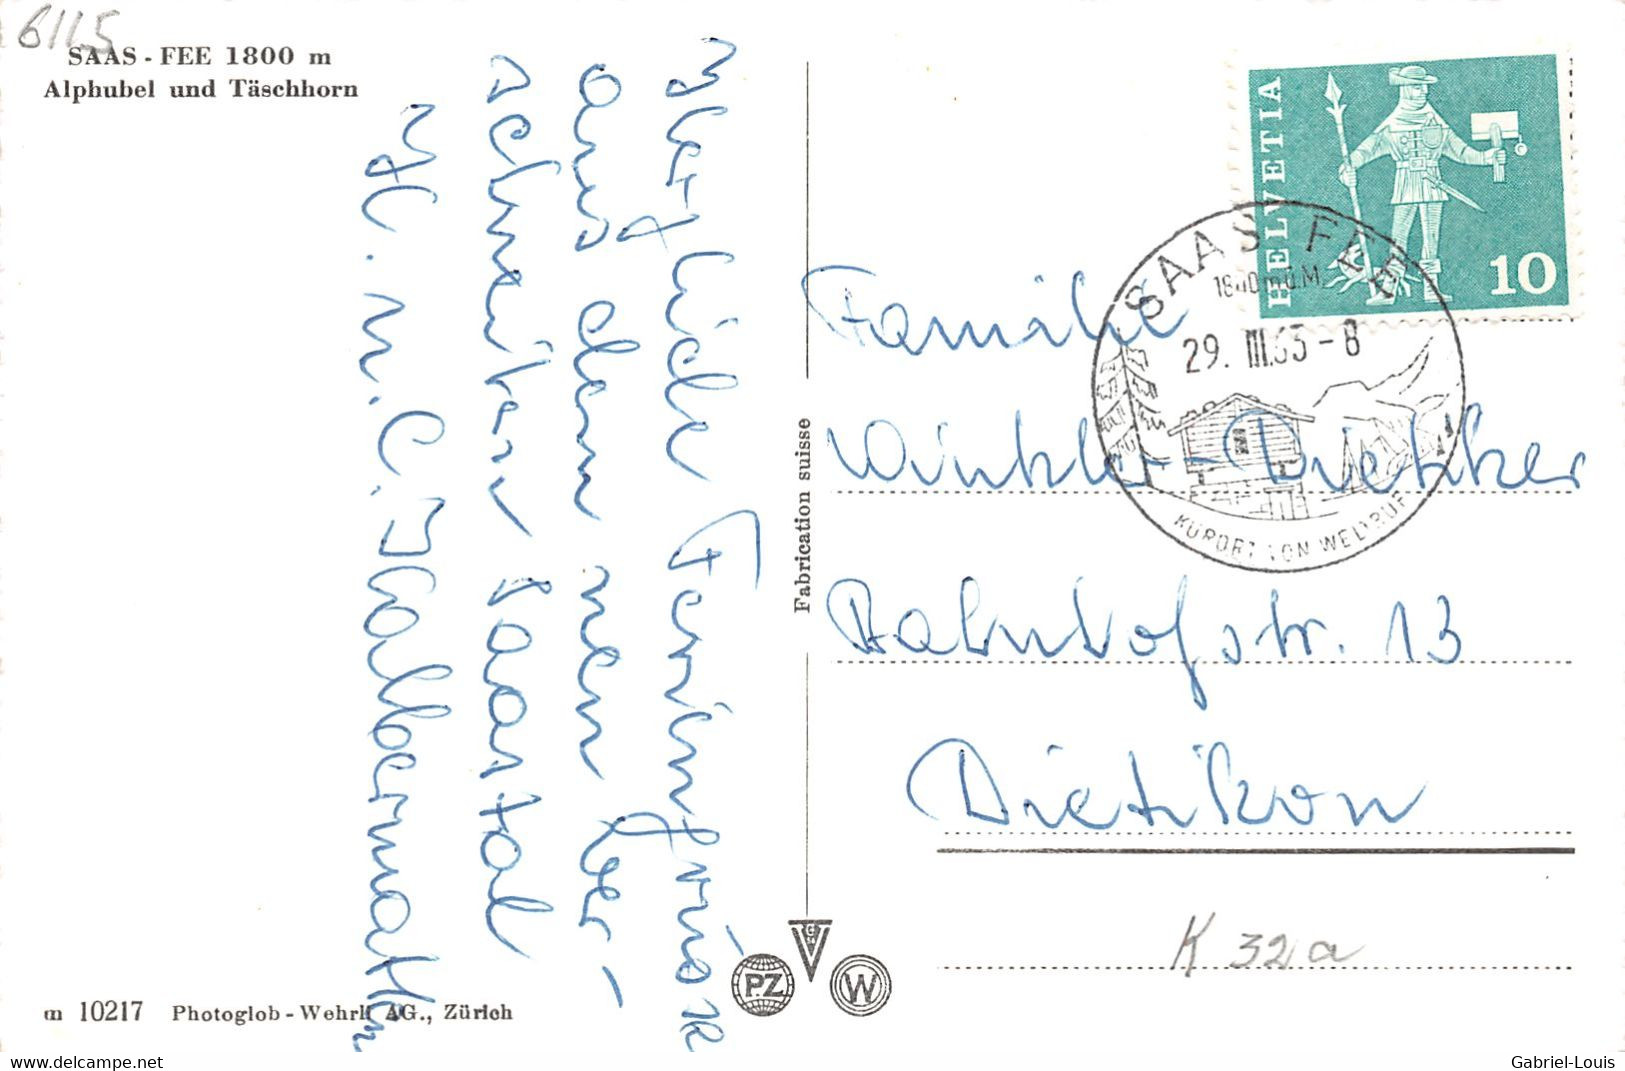 6115
SAAS - FEE 1800 m
Alphubel und Täschhorn
Herzliche Feriengrüsse
aus dem neu ver-
schneiten Saastal
H. M. C. Halbermatten
HELVETIA
10
SAAS-FEE
1800 m ü.M.
29. III.63-8
KURORT VON WELTRUF
Fabrication suisse
Familie
Winkler-Dickker
Bahnhofstr. 13
Dietikon
K 32a
m 10217 Photoglob - Wehrli AG., Zürich
PZ
V
W
www.delcampe.net
Gabriel-Louis